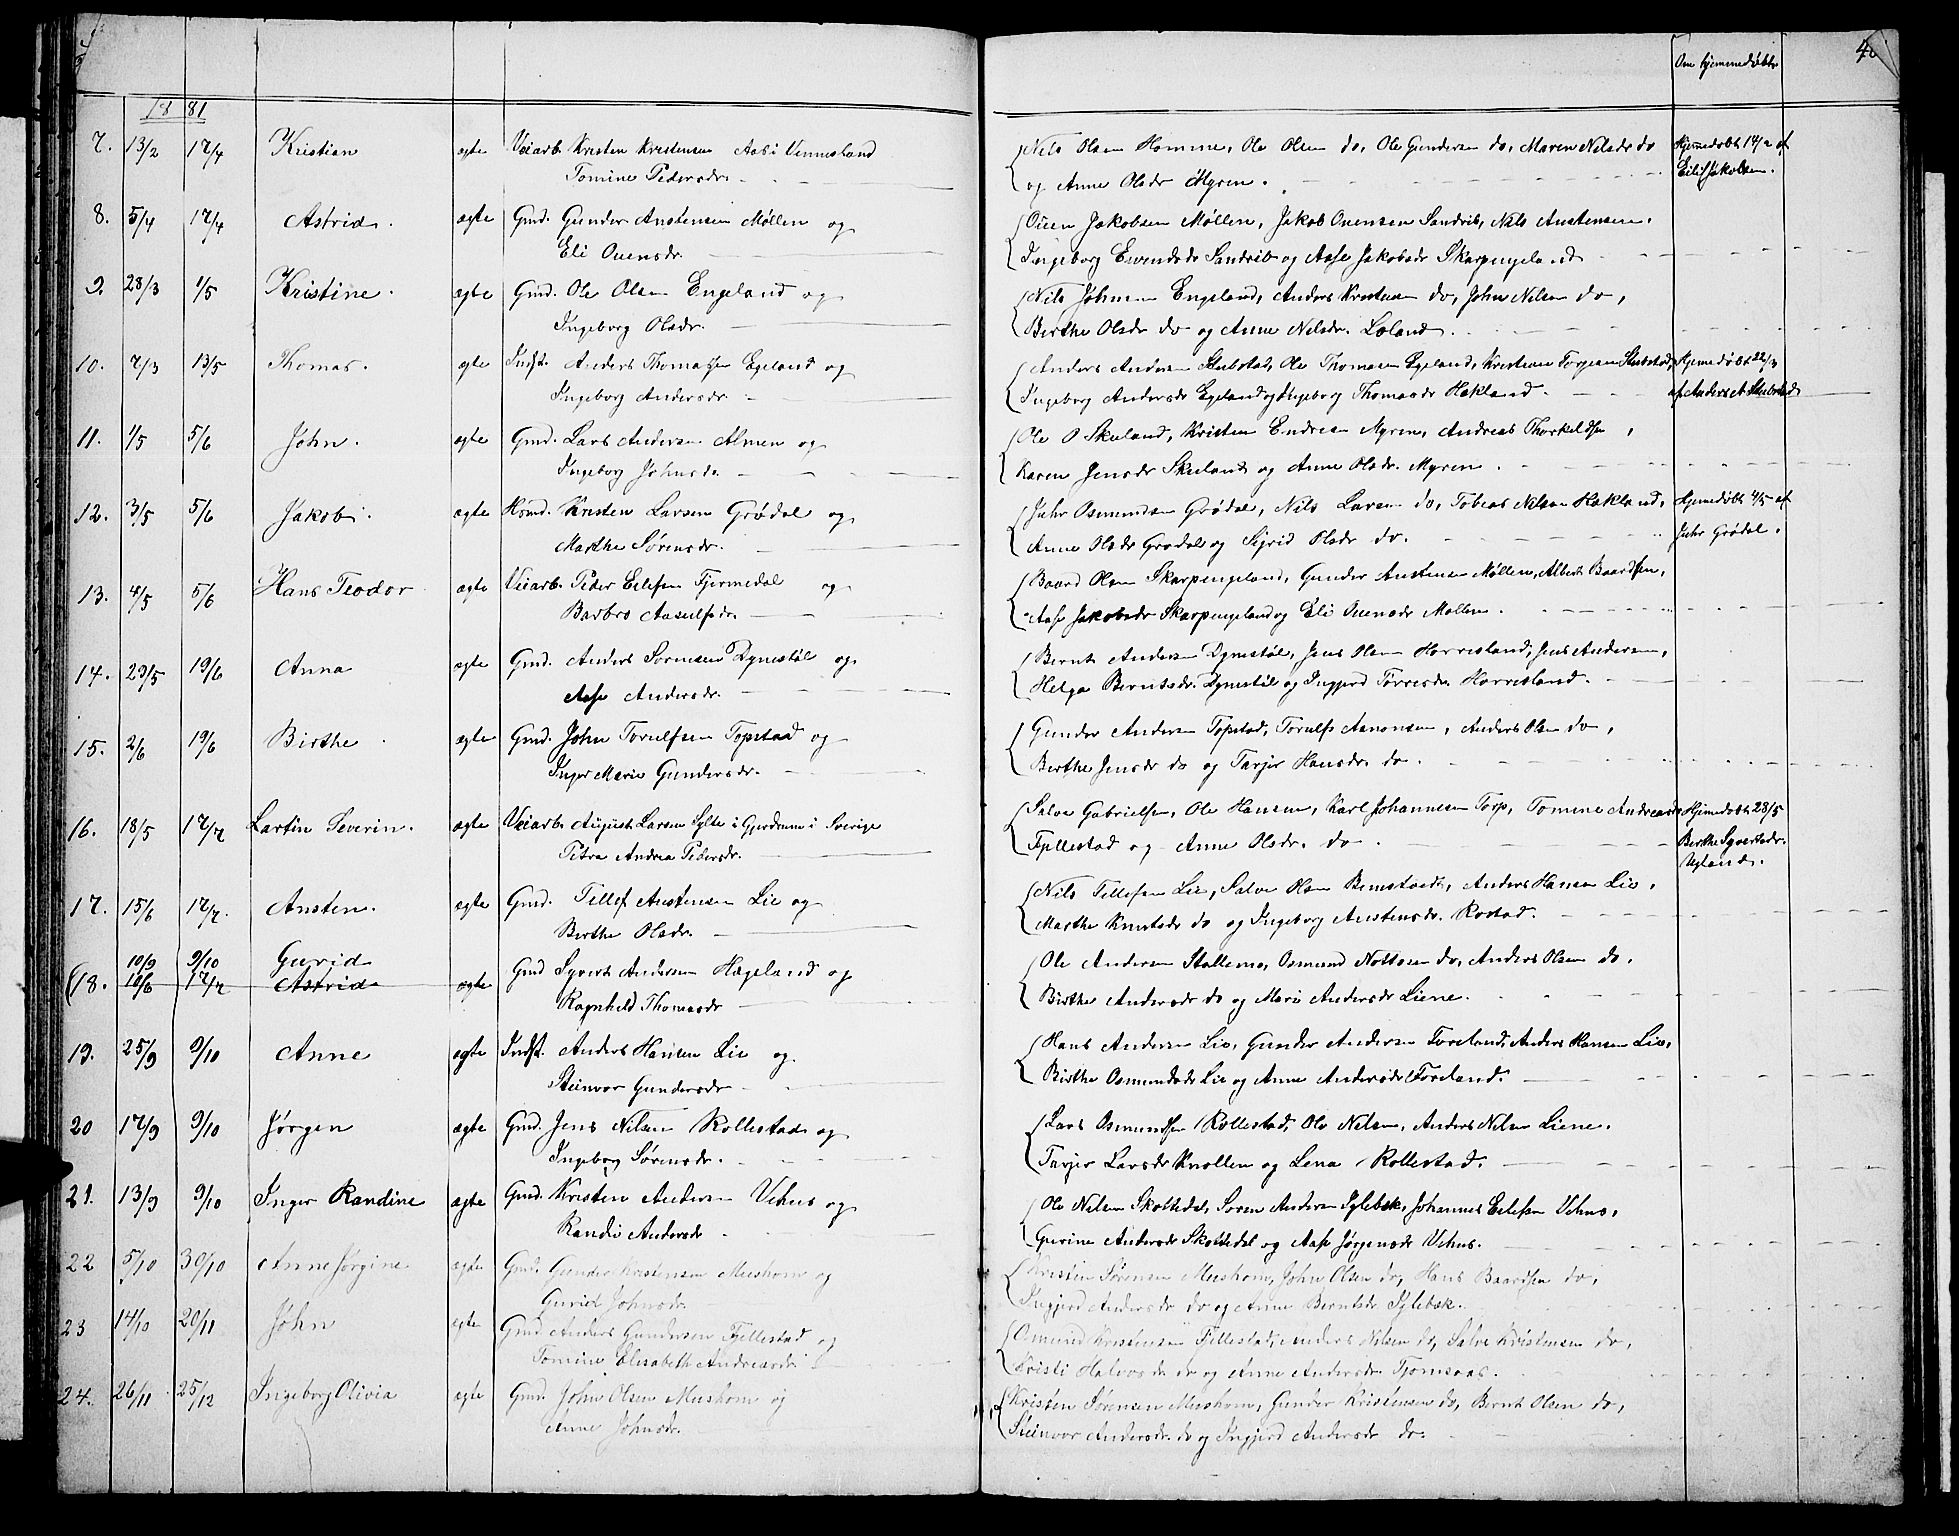 Om hjemmedøbte
1881
7. 13/2 17/4 Kristian ægte Veiarb. Kristen Kristensen Aas i Vennesland Nils Olsen Homme, Ole Olsen do, Ole Gundersen do, Maren Nilsdr do Hjemmedøbt 14/2 af
Tomine Pedersdr. og Anne Olsdr Myren. Eilif Jakobsen.
8. 5/4 17/4 Astrid. ægte Gmd. Gunder Austensen Møllen og Ouen Jakobsen Møllen, Jakob Ouensen Sandrib, Nils Austensen.
Eli Ouensdr. Ingeborg Evensdr Sandrib og Aase Jakobsdr Skarpengeland
9. 28/3 1/5 Kristine. ægte Gmd. Ole Olsen Engeland og Nils Johnsen Engeland, Anders Kristensen do, John Nilsen do,
Ingeborg Olsdr. Berthe Olsdr do og Anne Nilsdr. Loland.
10. 7/3 13/5 Thomas. ægte Indst. Anders Thomassen Egeland og Anders Andersen Stubstad, Ole Thomasen Egeland, Kristian Torjesen Stubstad, Hjemedøbt 22/3
Ingeborg Andersdr. Ingeborg Andersdr Egeland og Ingeborg Thomasdr Hakland. af Anders A Stubstad
11. 1/5 5/6 John. ægte Gmd. Lars Andersen Almen og Ole O Skuland, Kristen Endresen Myren, Andreas Thorkeldsen,
Ingeborg Johnsdr. Karen Jensdr Skuland og Anne Olsdr. Myren.
12. 3/5 5/6 Jakob. ægte Hsmd. Kristen Larsen Grødal og Juhr Osmundsen Grødal, Nils Larsen do, Tobias Nilsen Hakland, Hjemedøbt 4/5 af
Marthe Sørensdr. Anne Olsdr Grødal og Sigrid Olsdr do. Juhr Grødal.
13. 4/5 5/6 Hans Teodor ægte Veiarb. Peder Eilefsen Fjermedal og Baard Olsen Skarpengeland, Gunder Austensen Møllen, Albert Baardsen,
Barbro Aasulfsdr. Aase Jakobsdr Skarpengeland og Eli Ouensdr Møllen.
14. 23/5 19/6 Anna ægte Gmd. Anders Sørensen Dynestøl og Bernt Andersen Dynestøl, Jens Olsen Horrisland, Jens Andersen,
Aase Andersdr. Helga Berntsdr. Dynestøl og Ingjerd Torresdr. Horrisland.
15. 2/6 19/6 Birthe ægte Gmd. John Torulfsen Topstad og Gunder Andersen Topstad, Torulf Aanonsen, Anders Olsen do,
Inger Marie Gundersdr. Berthe Jensdr do og Tarjer Hansdr. do.
16. 18/5 17/7 Lartin Severin. ægte Veiarb. August Larsen Sylte i Sverige Salve Gabrielsen, Ole Hansen, Karl Johannesen Torp, Tomine Andreasdr Hjemedøbt 28/5
Petra Andrea Pedersdr. Fjellestad og Anne Olsdr. do. Berthe Syvertsdr.
Ugland.
17. 15/6 17/7. Austen. ægte Gmd. Tellef Austensen Lie og Nils Tellefsen Lie, Salve Olsen, Anders Hansen Lie,
Berthe Olsdr. Marthe Knutsdr do og Ingeborg Austensdr. Rostad.
10/9 9/10 Gurid
18. 10/6 17/7 Astrid ægte Gmd Syvert Andersen Hægeland og Ole Andersen Stallemo, Osmund Nottosen do, Anders Olsen do.
Ragnhild Thomasdr Birthe Andersdr do og Mari Andersdr Liene.
19. 25/9 9/10 Anne ægte Indst. Anders Hansen Lie og Hans Andersen Lie, Gunder Andersen Foreland, Anders Hansen Lie,
Steinvor Gundersdr Birthe Osmundsdr Lie og Anne Andersdr Foreland.
20 17/9 9/10 Jørgen ægte Gmd. Jens Nilsen Rollestad og Lars Osmundsen Rollestad, Ole Nilsen, Anders Nilsen Liene.
Ingeborg Sørensdr. Tarjer Larsdr Knollen og Lena Rollestad.
21. 13/9 9/10 Inger Randine ægte Gmd. Kristen Andersen Vehus og Ole Nilsen Skottedal, Soren Andersen Iglebæk, Johannes Eilefsen Vehus,
Randi Andersdr Gurine Andersdr Skottedal og Aase Jørgensdr Vehus.
22 5/10 30/10 Anne Jørgine ægte Gmd. Gunder Kristensen Mushom og Kristen Sørensen Mushom, John Olsen do, Hans Baardsen do,
Gurid Johnsdr. Ingjerd Andersdr do og Anne Berntsdr Iglebæk.
23 14/10 20/11 John ægte Gmd Anders Gundersen Fjellestad og Osmund Kristensen Fjellestad, Anders Nilsen do, Salve Kristensen do,
Tomine Elisabeth Andreasdr Kristi Halvorsdr do og Anne Andersdr Tjomsaas.
24. 26/11 25/12 Ingeborg Olivia ægte Gmd. John Olsen Mushom og Kristen Sørensen Mushom, Gunder Kristensen do, Bernt Olsen do,
Anne Johnsdr. Steinvor Andersdr. do og Ingjerd Andersdr do.